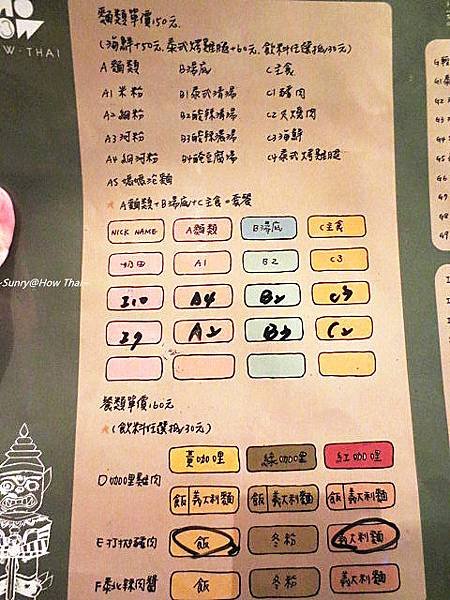 HOW
W·THAI
麵類單價150元
(海鮮+50元,泰式烤雞腿+60元,飲料任選抵30元)
A麵類 B湯底 C主食
A1米粉 B1泰式清湯 C1豬肉
A2細粉 B2酸辣清湯 C2火燒肉
A3河粉 B3酸辣濃湯 C3海鮮
A4細河粉 B4酸豆腐湯 C4泰式烤雞腿
A5媽媽泡麵
★ A麵類+B湯底+C主食=套餐
NICK NAME A麵類 B湯底 C主食
奶田 A1 B2 C3
I10 A4 B2 C3
I9 A2 B3 C2
-Sunry@How Thai-
飯類單價160元
★(飲料任選抵30元)
黃咖哩 綠咖哩 紅咖哩
D咖哩雞肉
飯 義大利麵 飯 義大利麵 飯 義大利麵
E打拋豬肉 飯 冬粉 義大利麵
F泰北辣肉醬 飯 冬粉 義大利麵